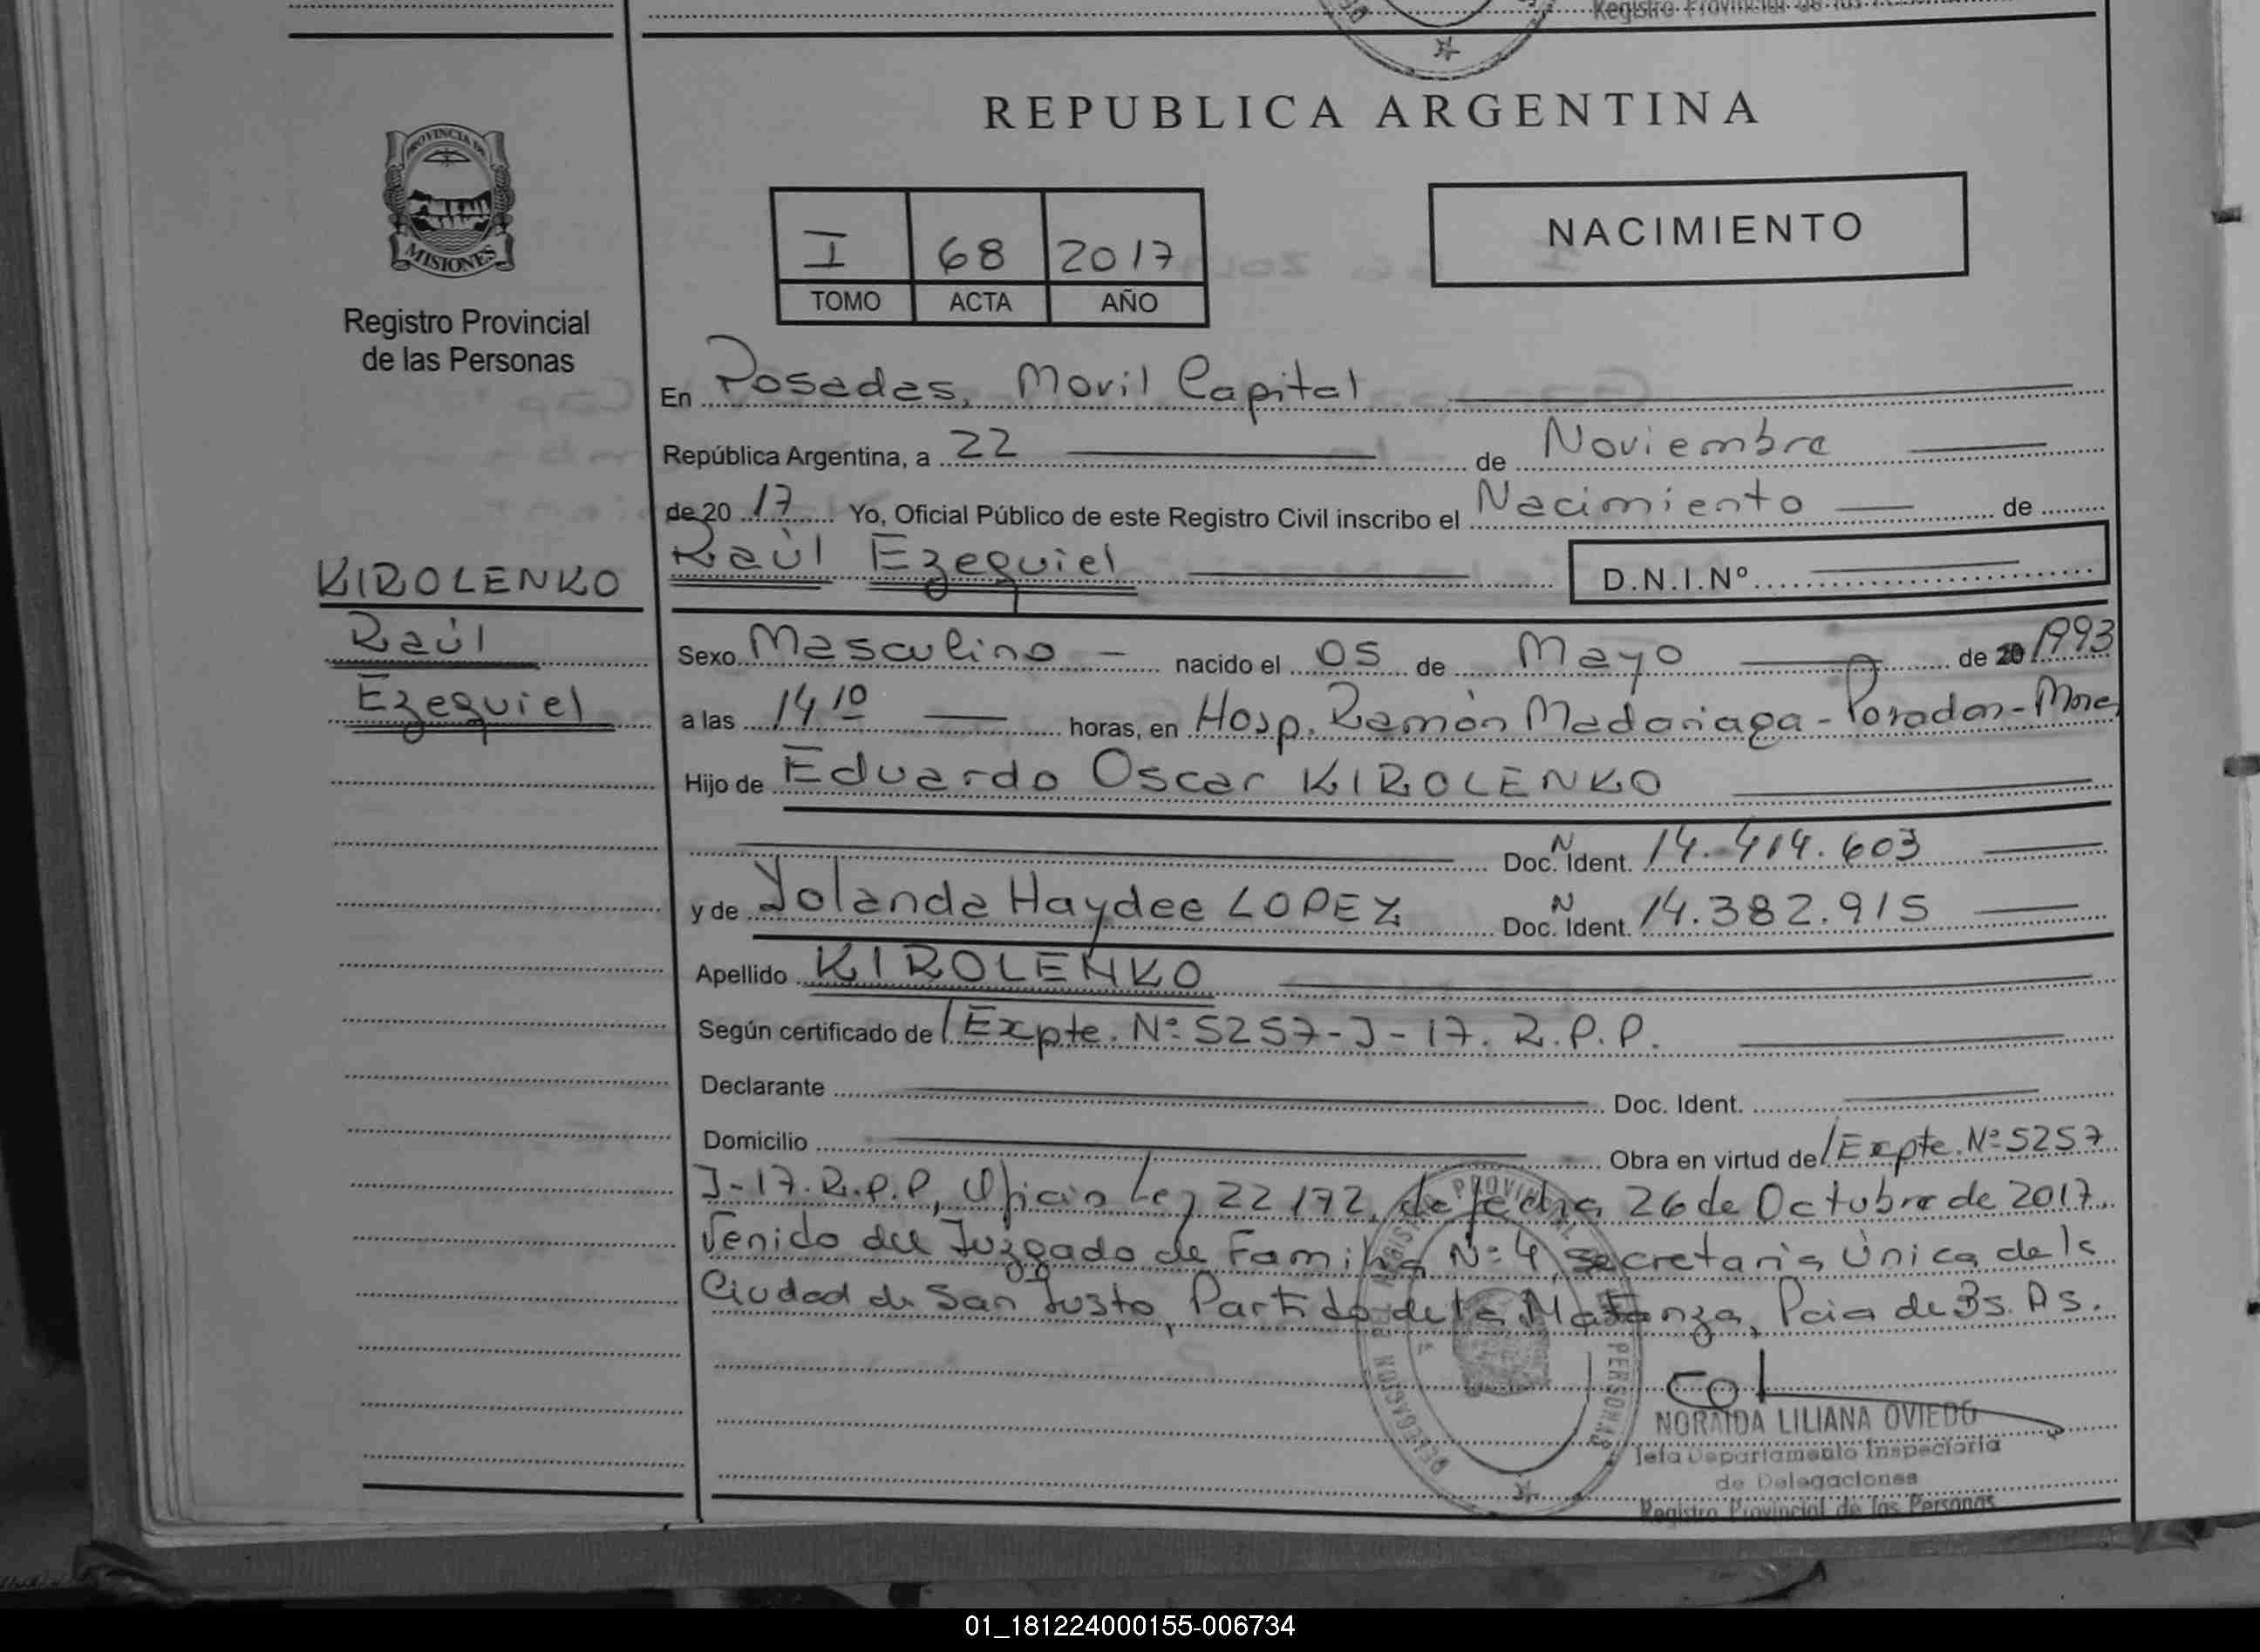 Registro Provincial de las Personas
REPUBLICA ARGENTINA
PROVINCIA DE
MISIONES
Registro Provincial
de las Personas
I 68 2017
TOMO ACTA AÑO
NACIMIENTO
En Posadas, Movil Capital
República Argentina, a 22 de Noviembre
de 20 17 Yo, Oficial Público de este Registro Civil inscribo el Nacimiento de
Raúl Ezequiel D.N.I.Nº
KIROLENKO
Raúl
Ezequiel
Sexo Masculino nacido el 05 de Mayo de 20 1993
a las 14 10 horas, en Hosp. Ramón Madariaga - Posadas - Mnes
Hijo de Eduardo Oscar KIROLENKO
Doc. N Ident. 14.414.603
y de Yolanda Haydee LOPEZ Doc. N Ident. 14.382.915
Apellido KIROLENKO
Según certificado de / Expte. Nº 5257-J-17. R.P.P.
Declarante Doc. Ident.
Domicilio Obra en virtud de / Expte. Nº 5257
J-17. R.P.P, Oficio Ley 22172, de fecha 26 de Octubre de 2017.
Venido del Juzgado de Familia Nº 4, secretaria Única de la
Ciudad de San Justo, Partido de la Matanza, Pcia de Bs. As.
DELEGACION PROVINCIAL PERSONAS
NORAIDA LILIANA OVIEDO
Jefa Departamento Inspectoria
de Delegaciones
Registro Provincial de las Personas
01_181224000155-006734